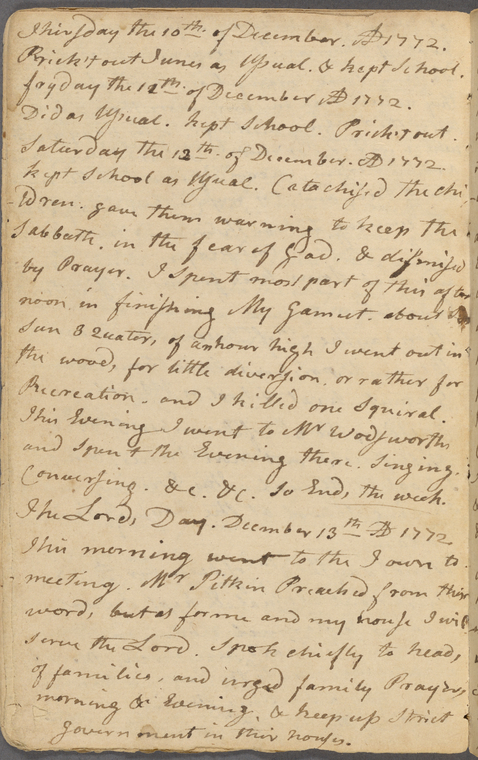 Thirsday the 10th. of December. AD 1772.
Prick't out Tunes as Usual. & kept School.
fryday the 11th. of December AD 1772.
Did as Usual. kept School. Prickt out.
Saturday the 12th. of December. AD 1772.
kept School as Usual. Catachised the chi
ldren. gave them warning to keep the
Sabbath. in the fear of God. & dismised
by Prayer. I Spent most part of this after
noon in finishing My Gamut. about
Sun 3 Quaters, of an hour high I went out in
the woods, for little diversion. or rather for
Recreation. and I killed one Squiral.
This Evening I went to Mr Wodsworths
and Spent the Evening there. Singing.
Conversing. &c. &c. So Ends the week.
The Lords Day. Decmber 13th AD 1772
This morning went to the Town to
meeting. Mr Pitkin Preached from this
words, but as for me and my house I will
serve the Lord. Spok chiefly to heads
of families, and urged family Prayer,
morning & Evening, & keep up Strict
government in their houses.